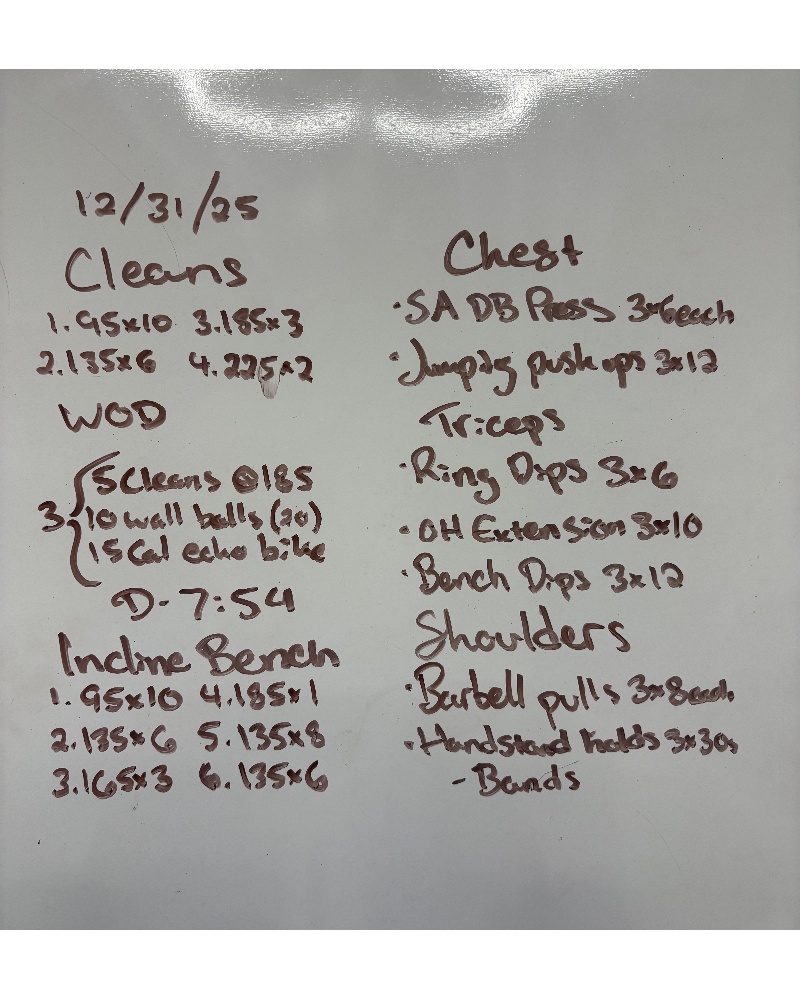 12/31/25
Cleans
1. 95x10 3. 185x3
2. 135x6 4. 225x2
WOD
3 { 5 Cleans @ 185
10 wall balls (20)
15 Cal echo bike
D- 7:54
Incline Bench
1. 95x10 4. 185x1
2. 135x6 5. 135x8
3. 165x3 6. 135x6
Chest
· SA DB Press 3x6 each
· Jumping push ups 3x12
Triceps
· Ring Dips 3x6
· OH Extension 3x10
· Bench Dips 3x12
Shoulders
· Barbell pulls 3x8 each
· Handstand holds 3x30s
- Bands